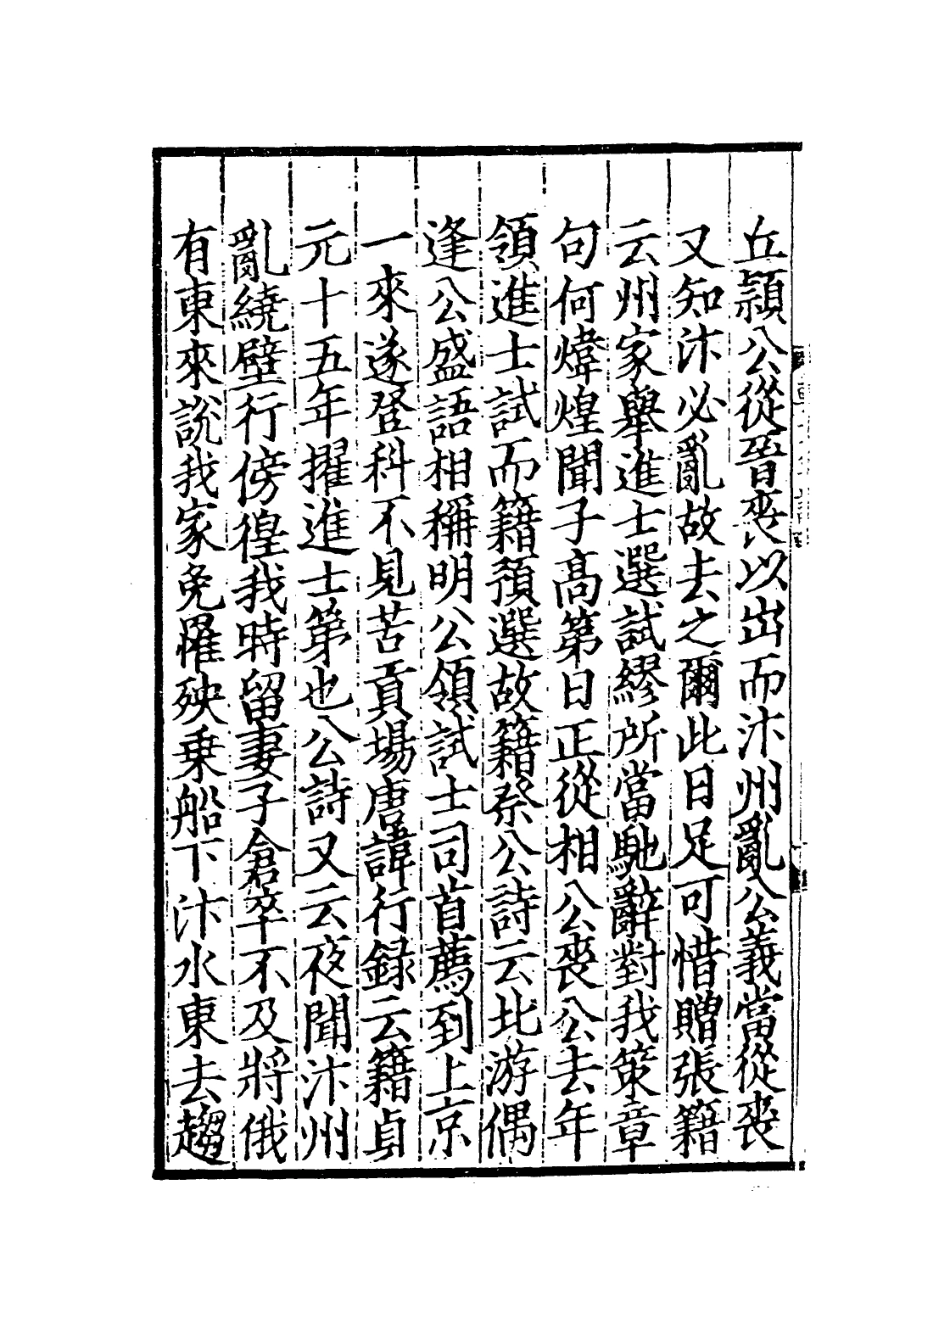 丘潁公從晉喪以出而汴州亂公義當從喪
又知汴必亂故去之爾此日足可惜贈張籍
云州家舉進士選試繆所當馳辭對我策章
句何煒煌聞子高第日正從相公喪公去年
領進士試而籍預選故籍祭公詩云北游偶
逢公盛語相稱明公領試士司首薦到上京
一來遂登科不見苦貢場唐諱行録云籍貞
元十五年擢進士第也公詩又云夜聞汴州
亂繞壁行傍徨我時留妻子倉卒不及將俄
有東來說我家免罹殃乗船下汴水東去趨